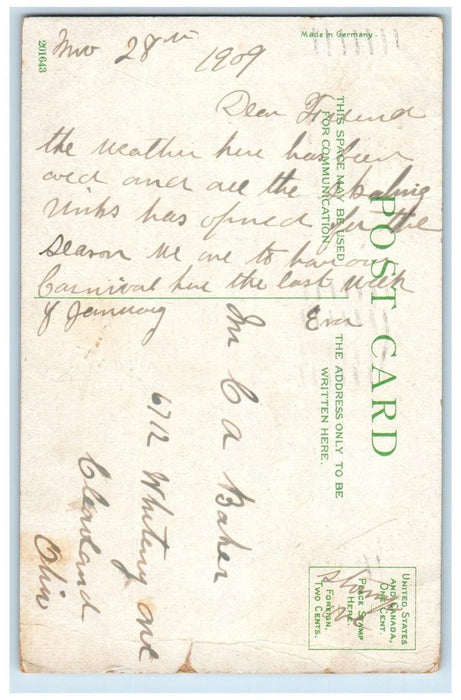 201643
Made in Germany.
Nov 28th 1909
Dear Friend
the weather here has been
cold and all the skating
rinks has opned for the
season We are to have our
Carnival here the last week
of January Eva
THIS SPACE MAY BE USED
FOR COMMUNICATION.
POST CARD
THE ADDRESS ONLY TO BE
WRITTEN HERE.
Mr C A Baker
6712 Whitney ave
Cleveland
Ohio
UNITED STATES
AND CANADA,
ONE CENT.
PLACE STAMP
HERE
FOREIGN,
TWO CENTS.